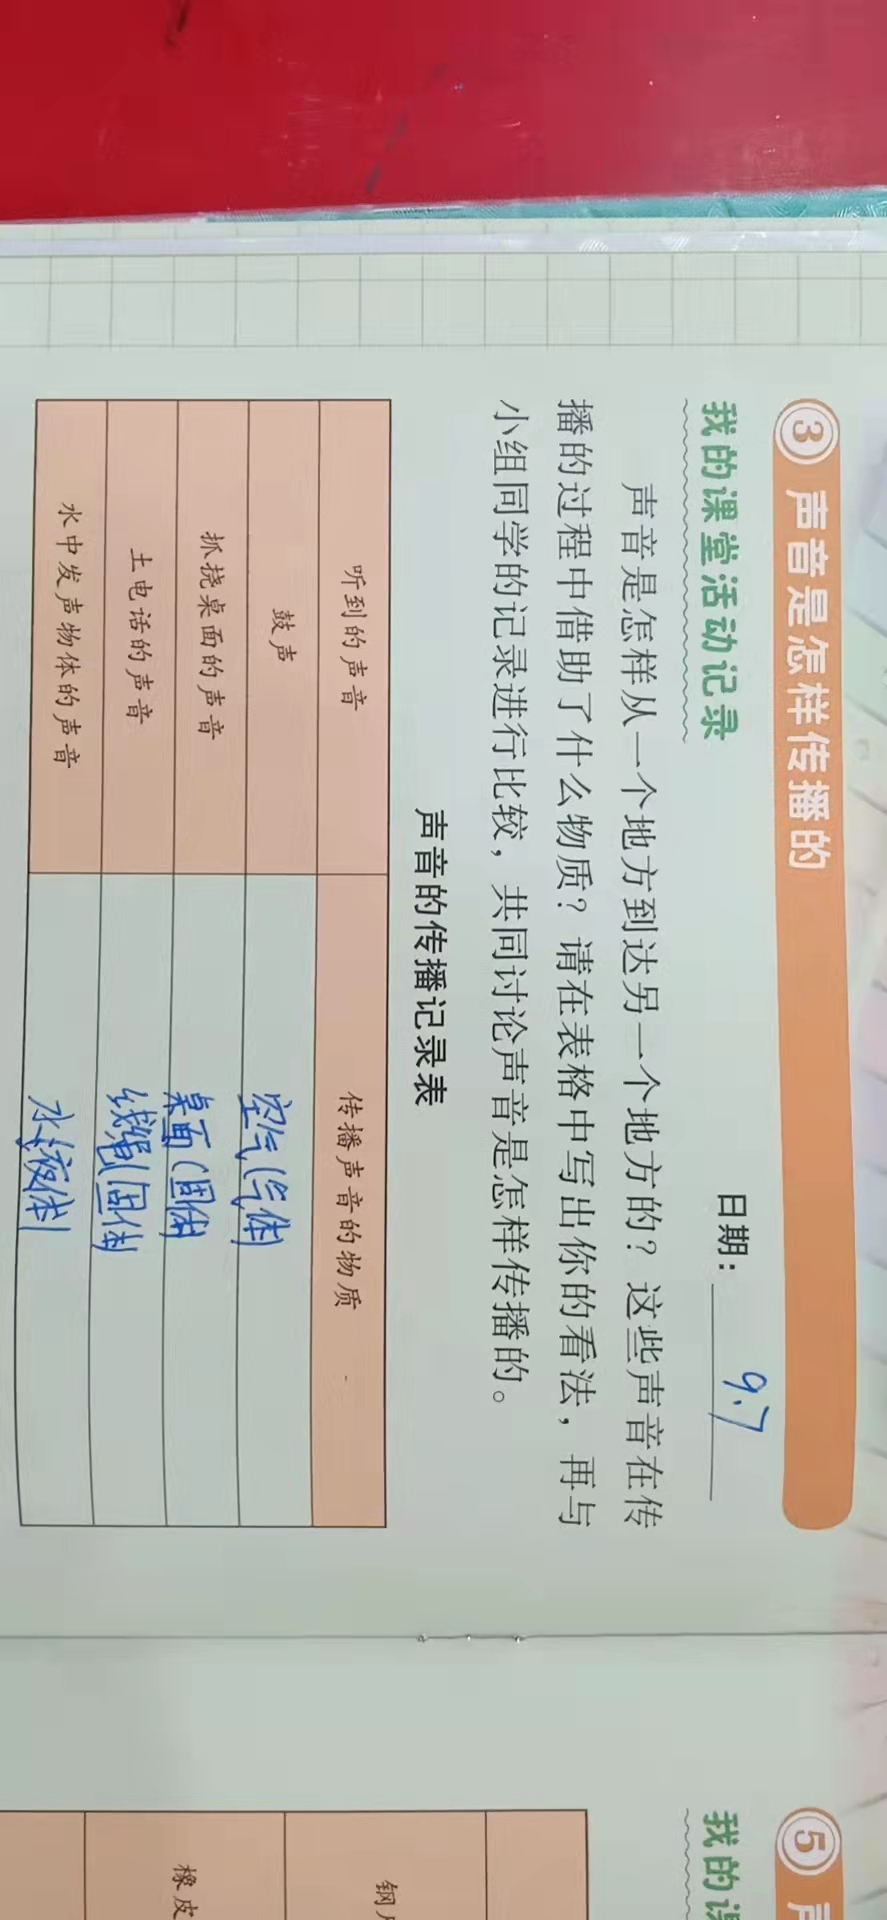 ③ 声音是怎样传播的
我的课堂活动记录
日期：9.7
声音是怎样从一个地方到达另一个地方的？这些声音在传
播的过程中借助了什么物质？请在表格中写出你的看法，再与
小组同学的记录进行比较，共同讨论声音是怎样传播的。
声音的传播记录表
听到的声音 传播声音的物质
鼓声 空气(气体)
抓挠桌面的声音 桌面(固体)
土电话的声音 线绳(固体)
水中发声物体的声音 水(液体)
⑤
我的
钢
橡皮